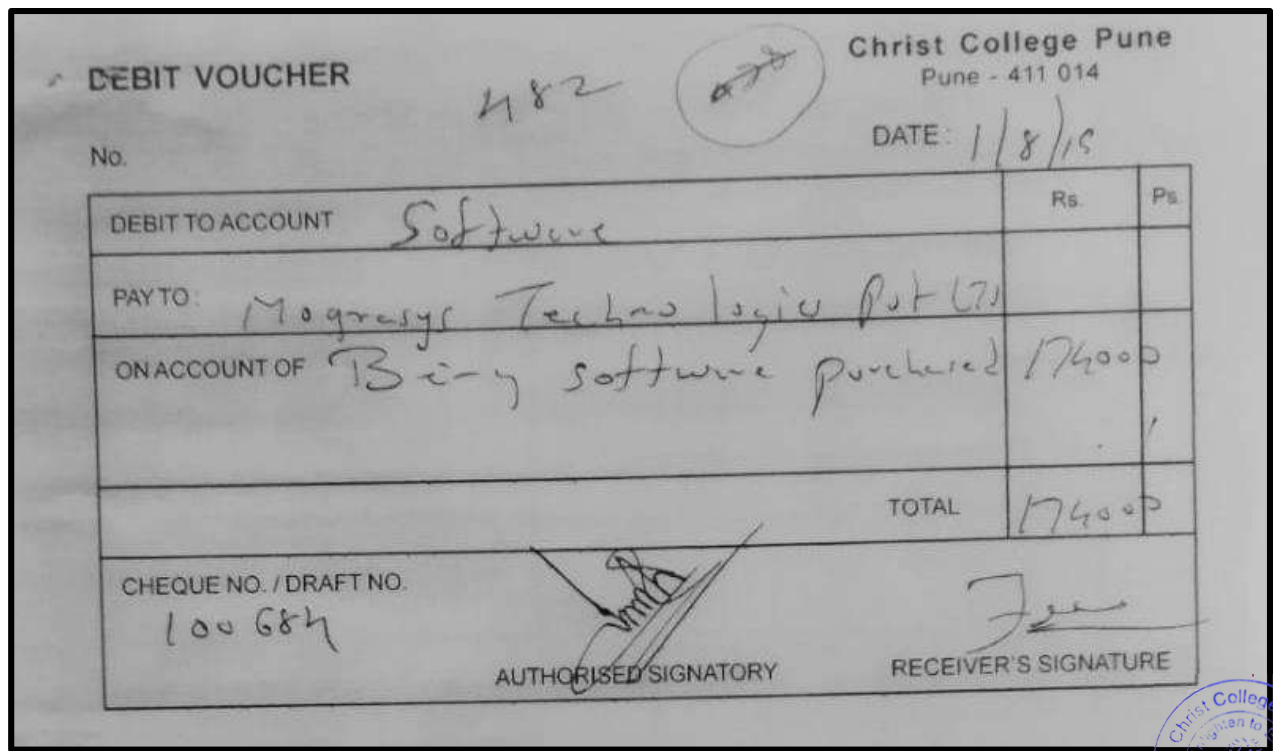 DEBIT VOUCHER
482
Christ College Pune
Pune - 411 014
No.
DATE: 1/8/15
DEBIT TO ACCOUNT Software
Rs. Ps.
PAY TO: Mograsys Technologies Pvt Ltd
ON ACCOUNT OF Being software purchased 174000
TOTAL 174000
CHEQUE NO. / DRAFT NO.
100684
AUTHORISED SIGNATORY
RECEIVER'S SIGNATURE
Christ College